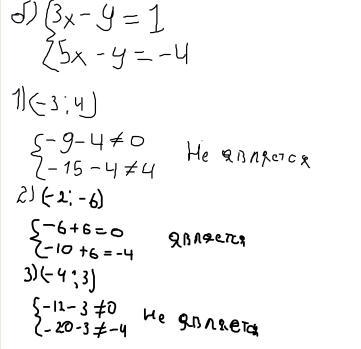 б) {3x - y = 1
{5x - y = -4
1) (-3; 4)
{-9 - 4 ≠ 0
{-15 - 4 ≠ 4
Не является
2) (-2; -6)
{-6 + 6 = 0
{-10 + 6 = -4
является
3) (-4; 3)
{-12 - 3 ≠ 0
{-20 - 3 ≠ -4
Не является